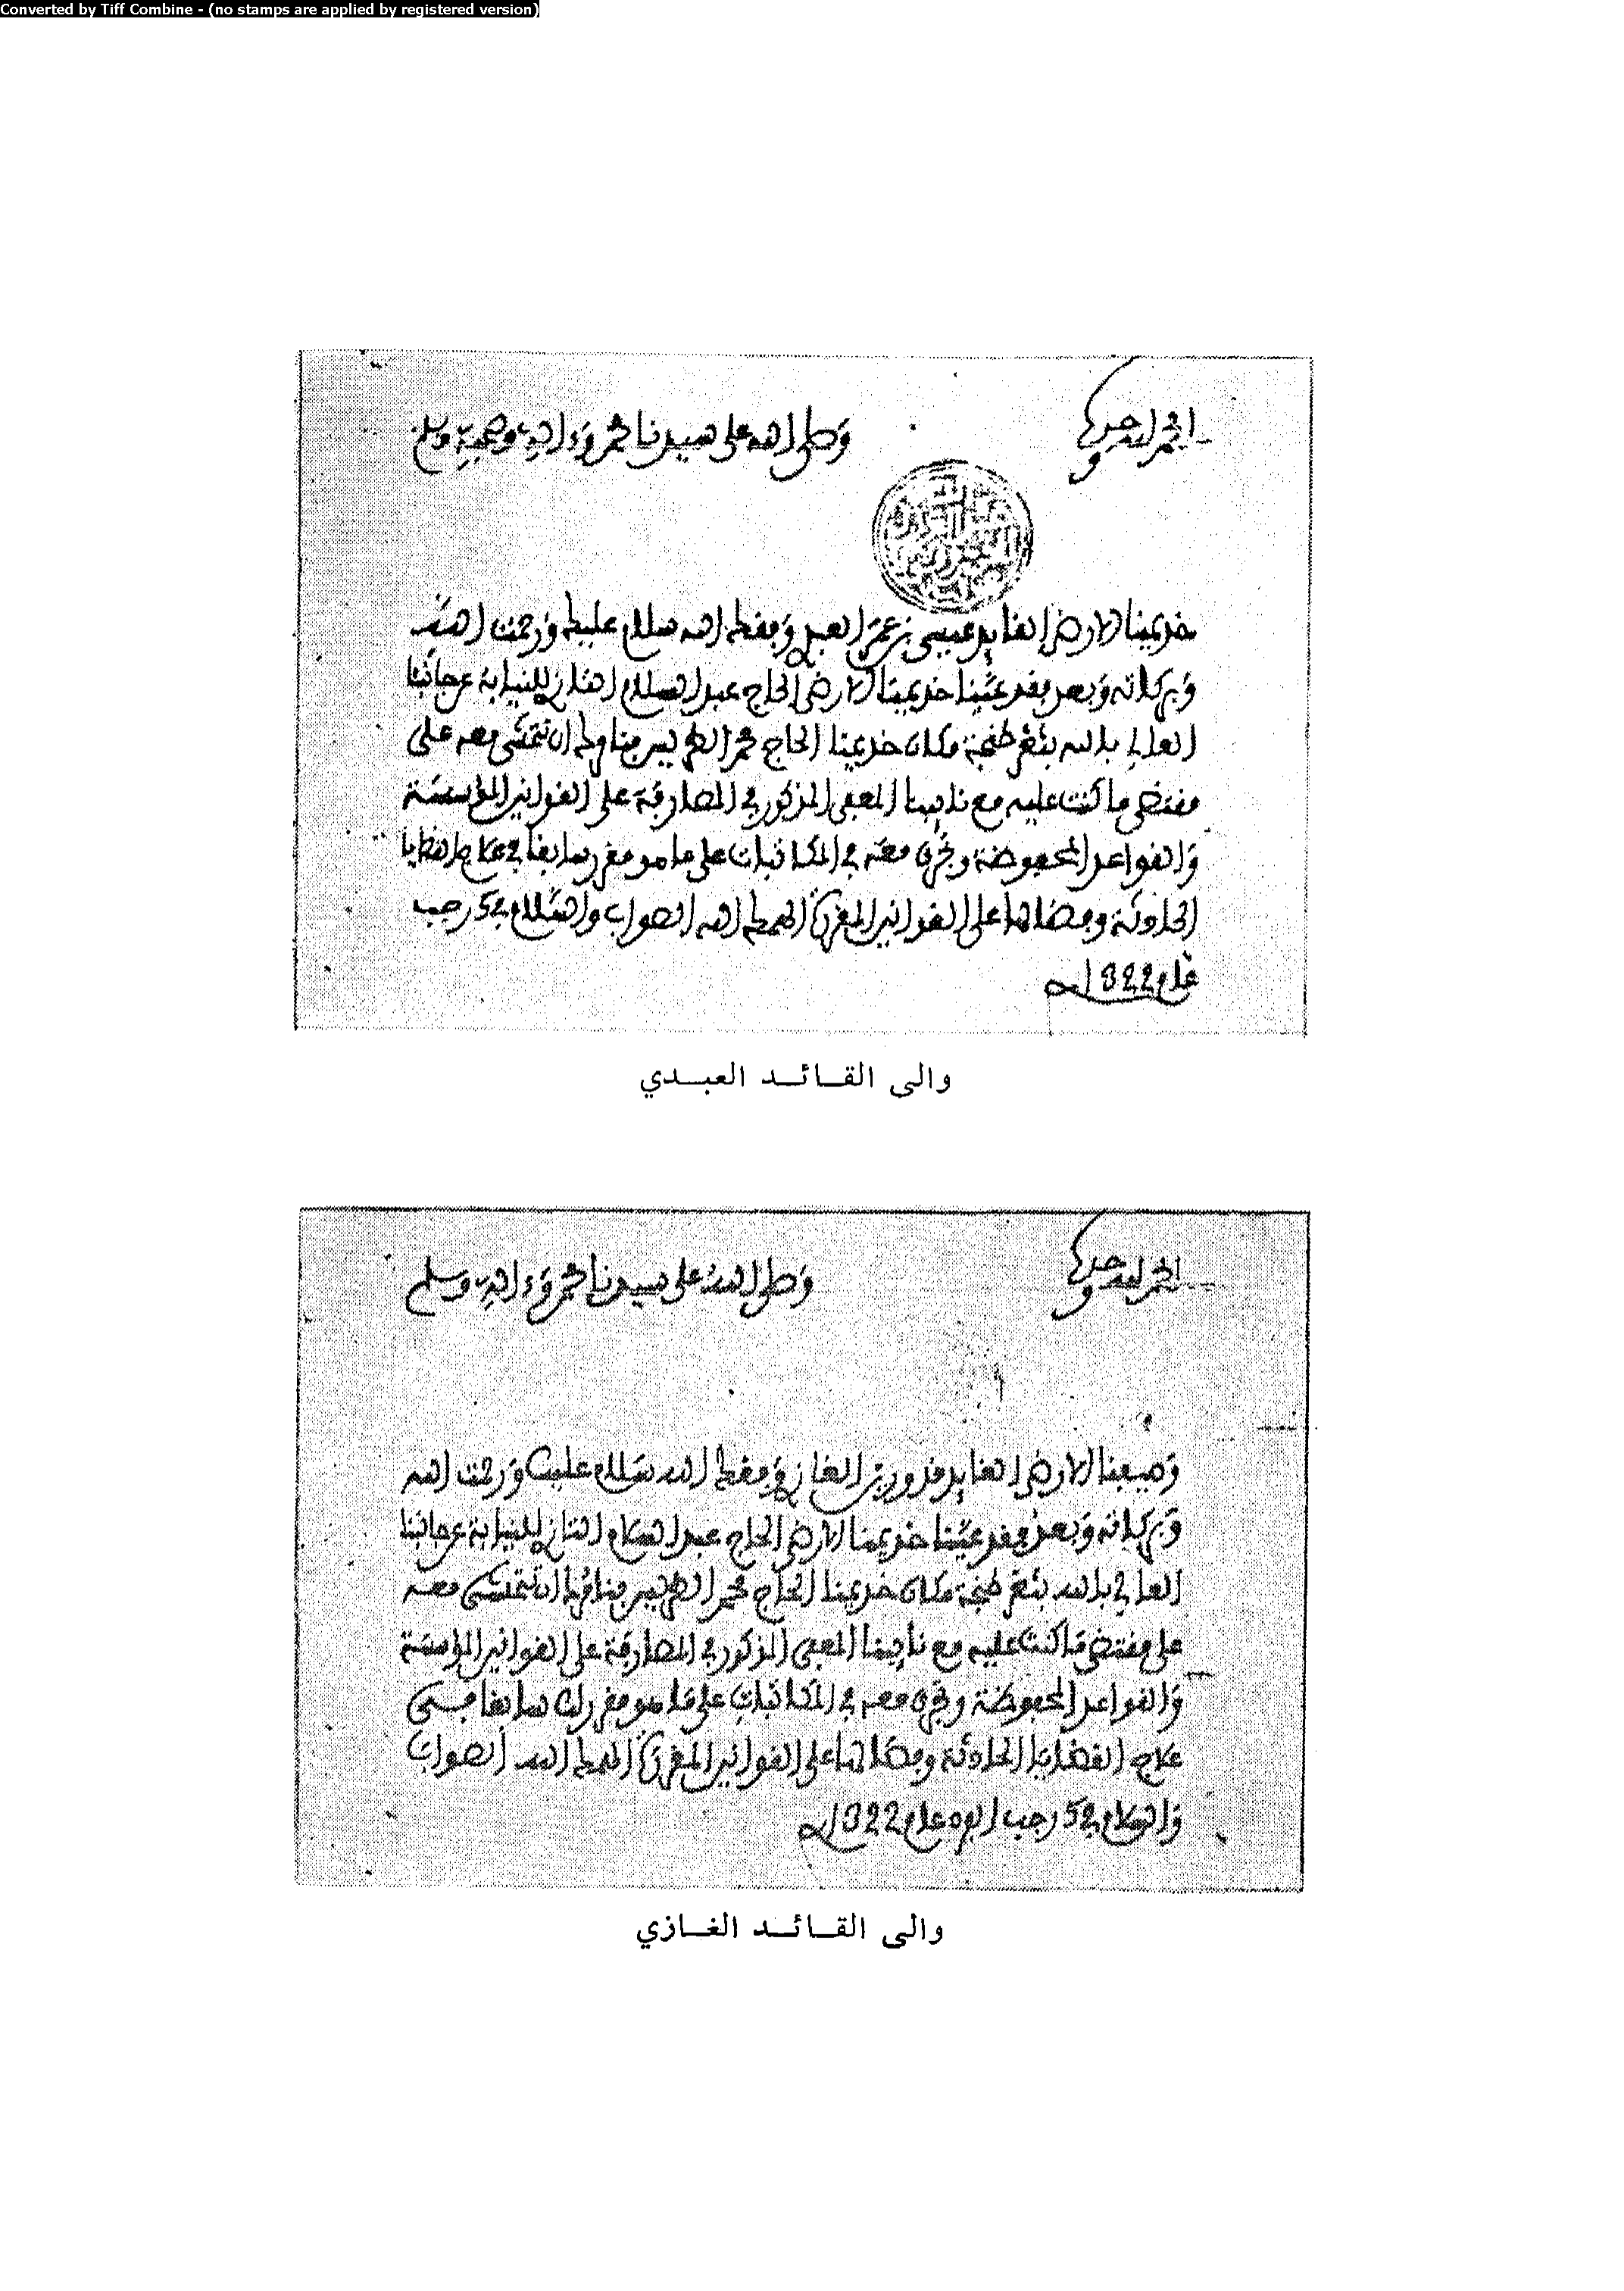 Converted by Tiff Combine - (no stamps are applied by registered version)
الحمد لله وحده
وصلى الله على سيدنا محمد وءاله وصحبه وسلم
خديمنا الارضى القايد عيسى بن عمر العبدي وفقك الله سلام عليك ورحمت الله
وبركاته وبعد فقد عينا خديمنا الارضى الحاج عبد السلام التازي للنيابة عن جانبنا
العالي بالله بثغر طنجة مكان خديمنا الحاج محمد الطريس فنامرك ان تتمشى معه على
مقتضى ما كنت عليه مع نايبنا المعفى المذكور في المصارفة على القوانين المؤسسة
والقواعد المحفوظة وتجري معه في المكاتبات على ما هو مقرر سابقا في علاج القضايا
الحادثة وفصالها على القوانين المقررة الهمك الله الصواب والسلام في 25 رجب
عام 1322
والى القائد العبدي
الحمد لله وحده
وصلى الله على سيدنا محمد وءاله وسلم
وصيفنا الارضى القايد قدور بن الغازي وفقك الله سلام عليك ورحمت الله
وبركاته وبعد فقد عينا خديمنا الارضى الحاج عبد السلام التازي للنيابة عن جانبنا
العالي بالله بثغر طنجة مكان خديمنا الحاج محمد الطريس فنامرك ان تتمشى معه
على مقتضى ما كنت عليه مع نايبنا المعفى المذكور في المصارفة على القوانين المؤسسة
والقواعد المحفوظة وتجري معه في المكاتبات على ما هو مقرر لك سابقا في
علاج القضايا الحادثة وفصالها على القوانين المقررة الهمك الله الصواب
والسلام في 25 رجب الفرد عام 1322
والى القائد الغازي